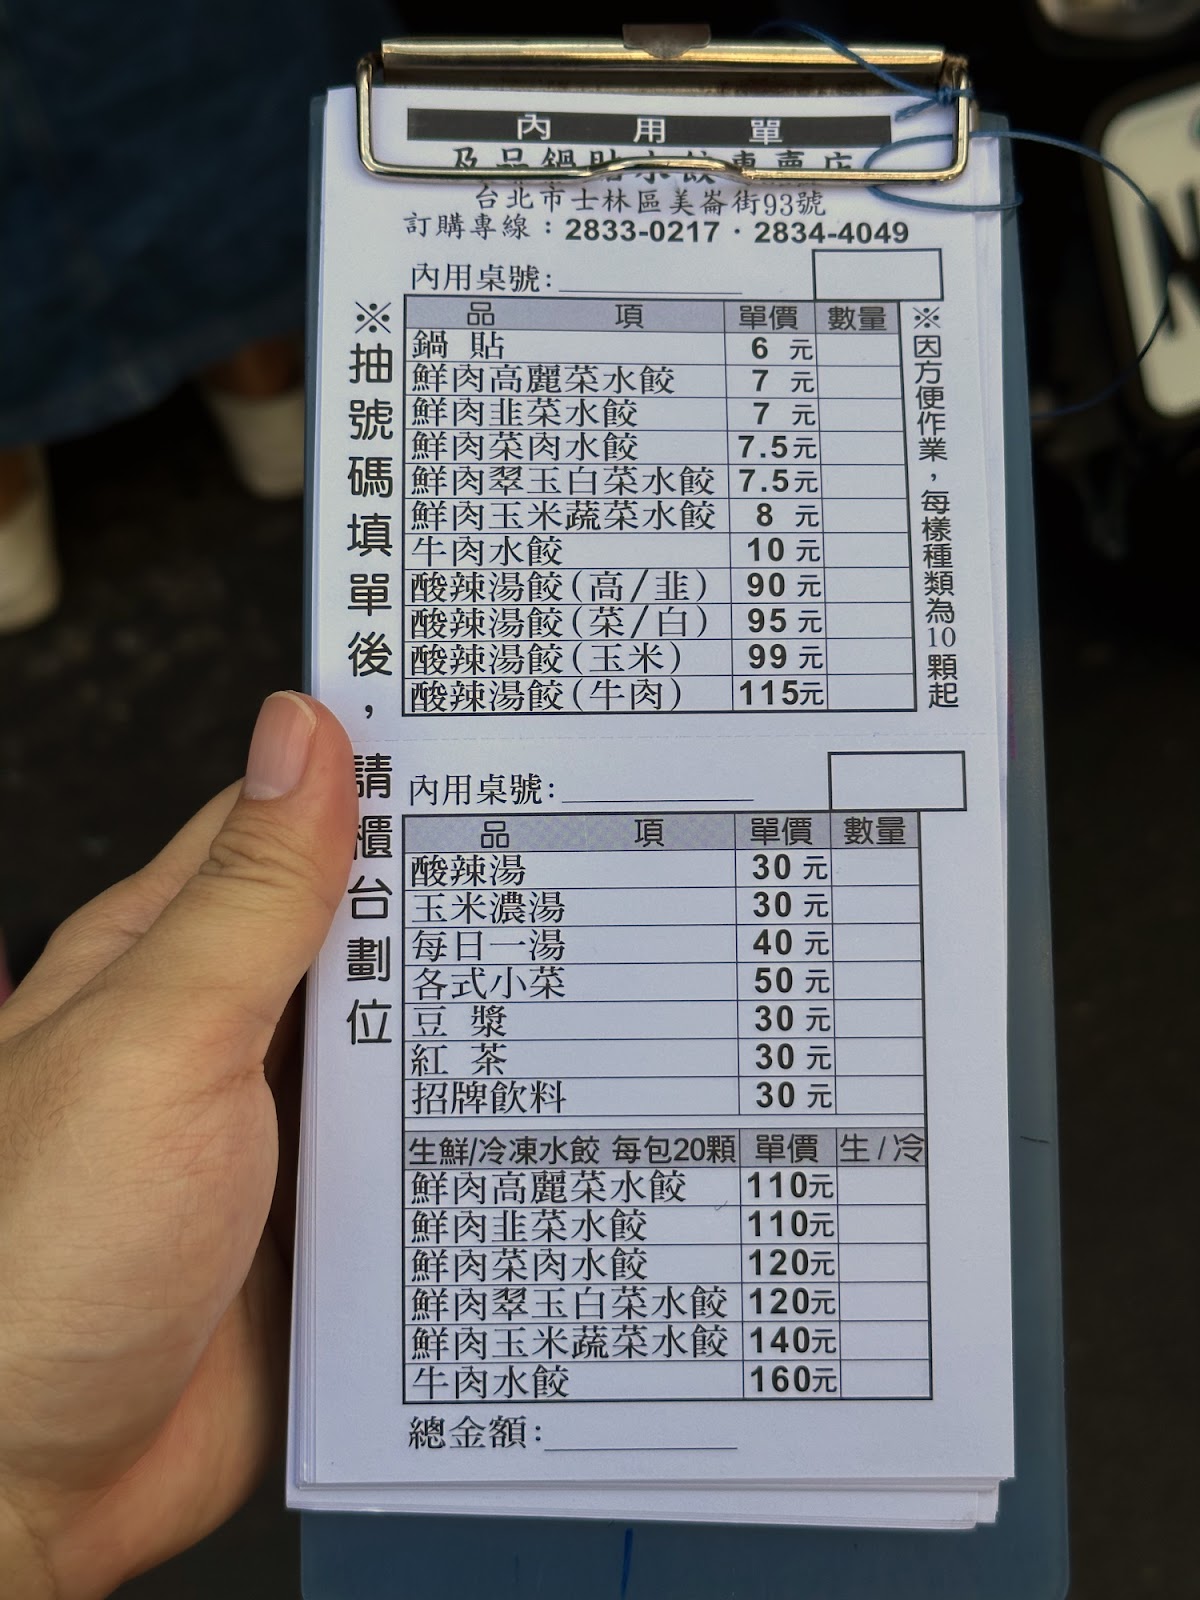 內用單
及品鍋貼水餃專賣店
台北市士林區美崙街93號
訂購專線：2833-0217・2834-4049
內用桌號：
※抽號碼填單後，請櫃台劃位
品項 單價 數量
鍋貼 6元
鮮肉高麗菜水餃 7元
鮮肉韭菜水餃 7元
鮮肉菜肉水餃 7.5元
鮮肉翠玉白菜水餃 7.5元
鮮肉玉米蔬菜水餃 8元
牛肉水餃 10元
酸辣湯餃(高/韭) 90元
酸辣湯餃(菜/白) 95元
酸辣湯餃(玉米) 99元
酸辣湯餃(牛肉) 115元
※因方便作業，每樣種類為10顆起
內用桌號：
品項 單價 數量
酸辣湯 30元
玉米濃湯 30元
每日一湯 40元
各式小菜 50元
豆漿 30元
紅茶 30元
招牌飲料 30元
生鮮/冷凍水餃 每包20顆 單價 生/冷
鮮肉高麗菜水餃 110元
鮮肉韭菜水餃 110元
鮮肉菜肉水餃 120元
鮮肉翠玉白菜水餃 120元
鮮肉玉米蔬菜水餃 140元
牛肉水餃 160元
總金額：